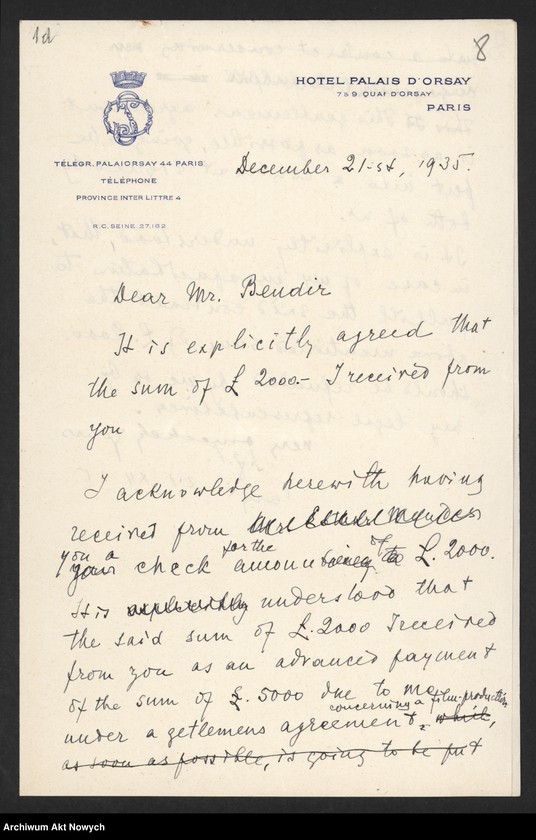 1d
8
HOTEL PALAIS D'ORSAY
7 & 9. QUAI D'ORSAY
PARIS
TÉLÉGR. PALAIORSAY 44 PARIS
TÉLÉPHONE
PROVINCE INTER LITTRÉ 4
R.C. SEINE. 27.182
December 21-st, 1935.
Dear Mr. Bendir
It is explicitly agreed that
the sum of £ 2000.- I received from
you
I acknowledge herewith having
received from
you a for the of
your check amoun to £. 2000.
It is understood that
the said sum of £. 2000 I received
from you as an advanced payment
of the sum of £. 5000 due to me
concerning a film-production
under a getlemens agreement, which,
as soon as possible, is going to be put
Archiwum Akt Nowych